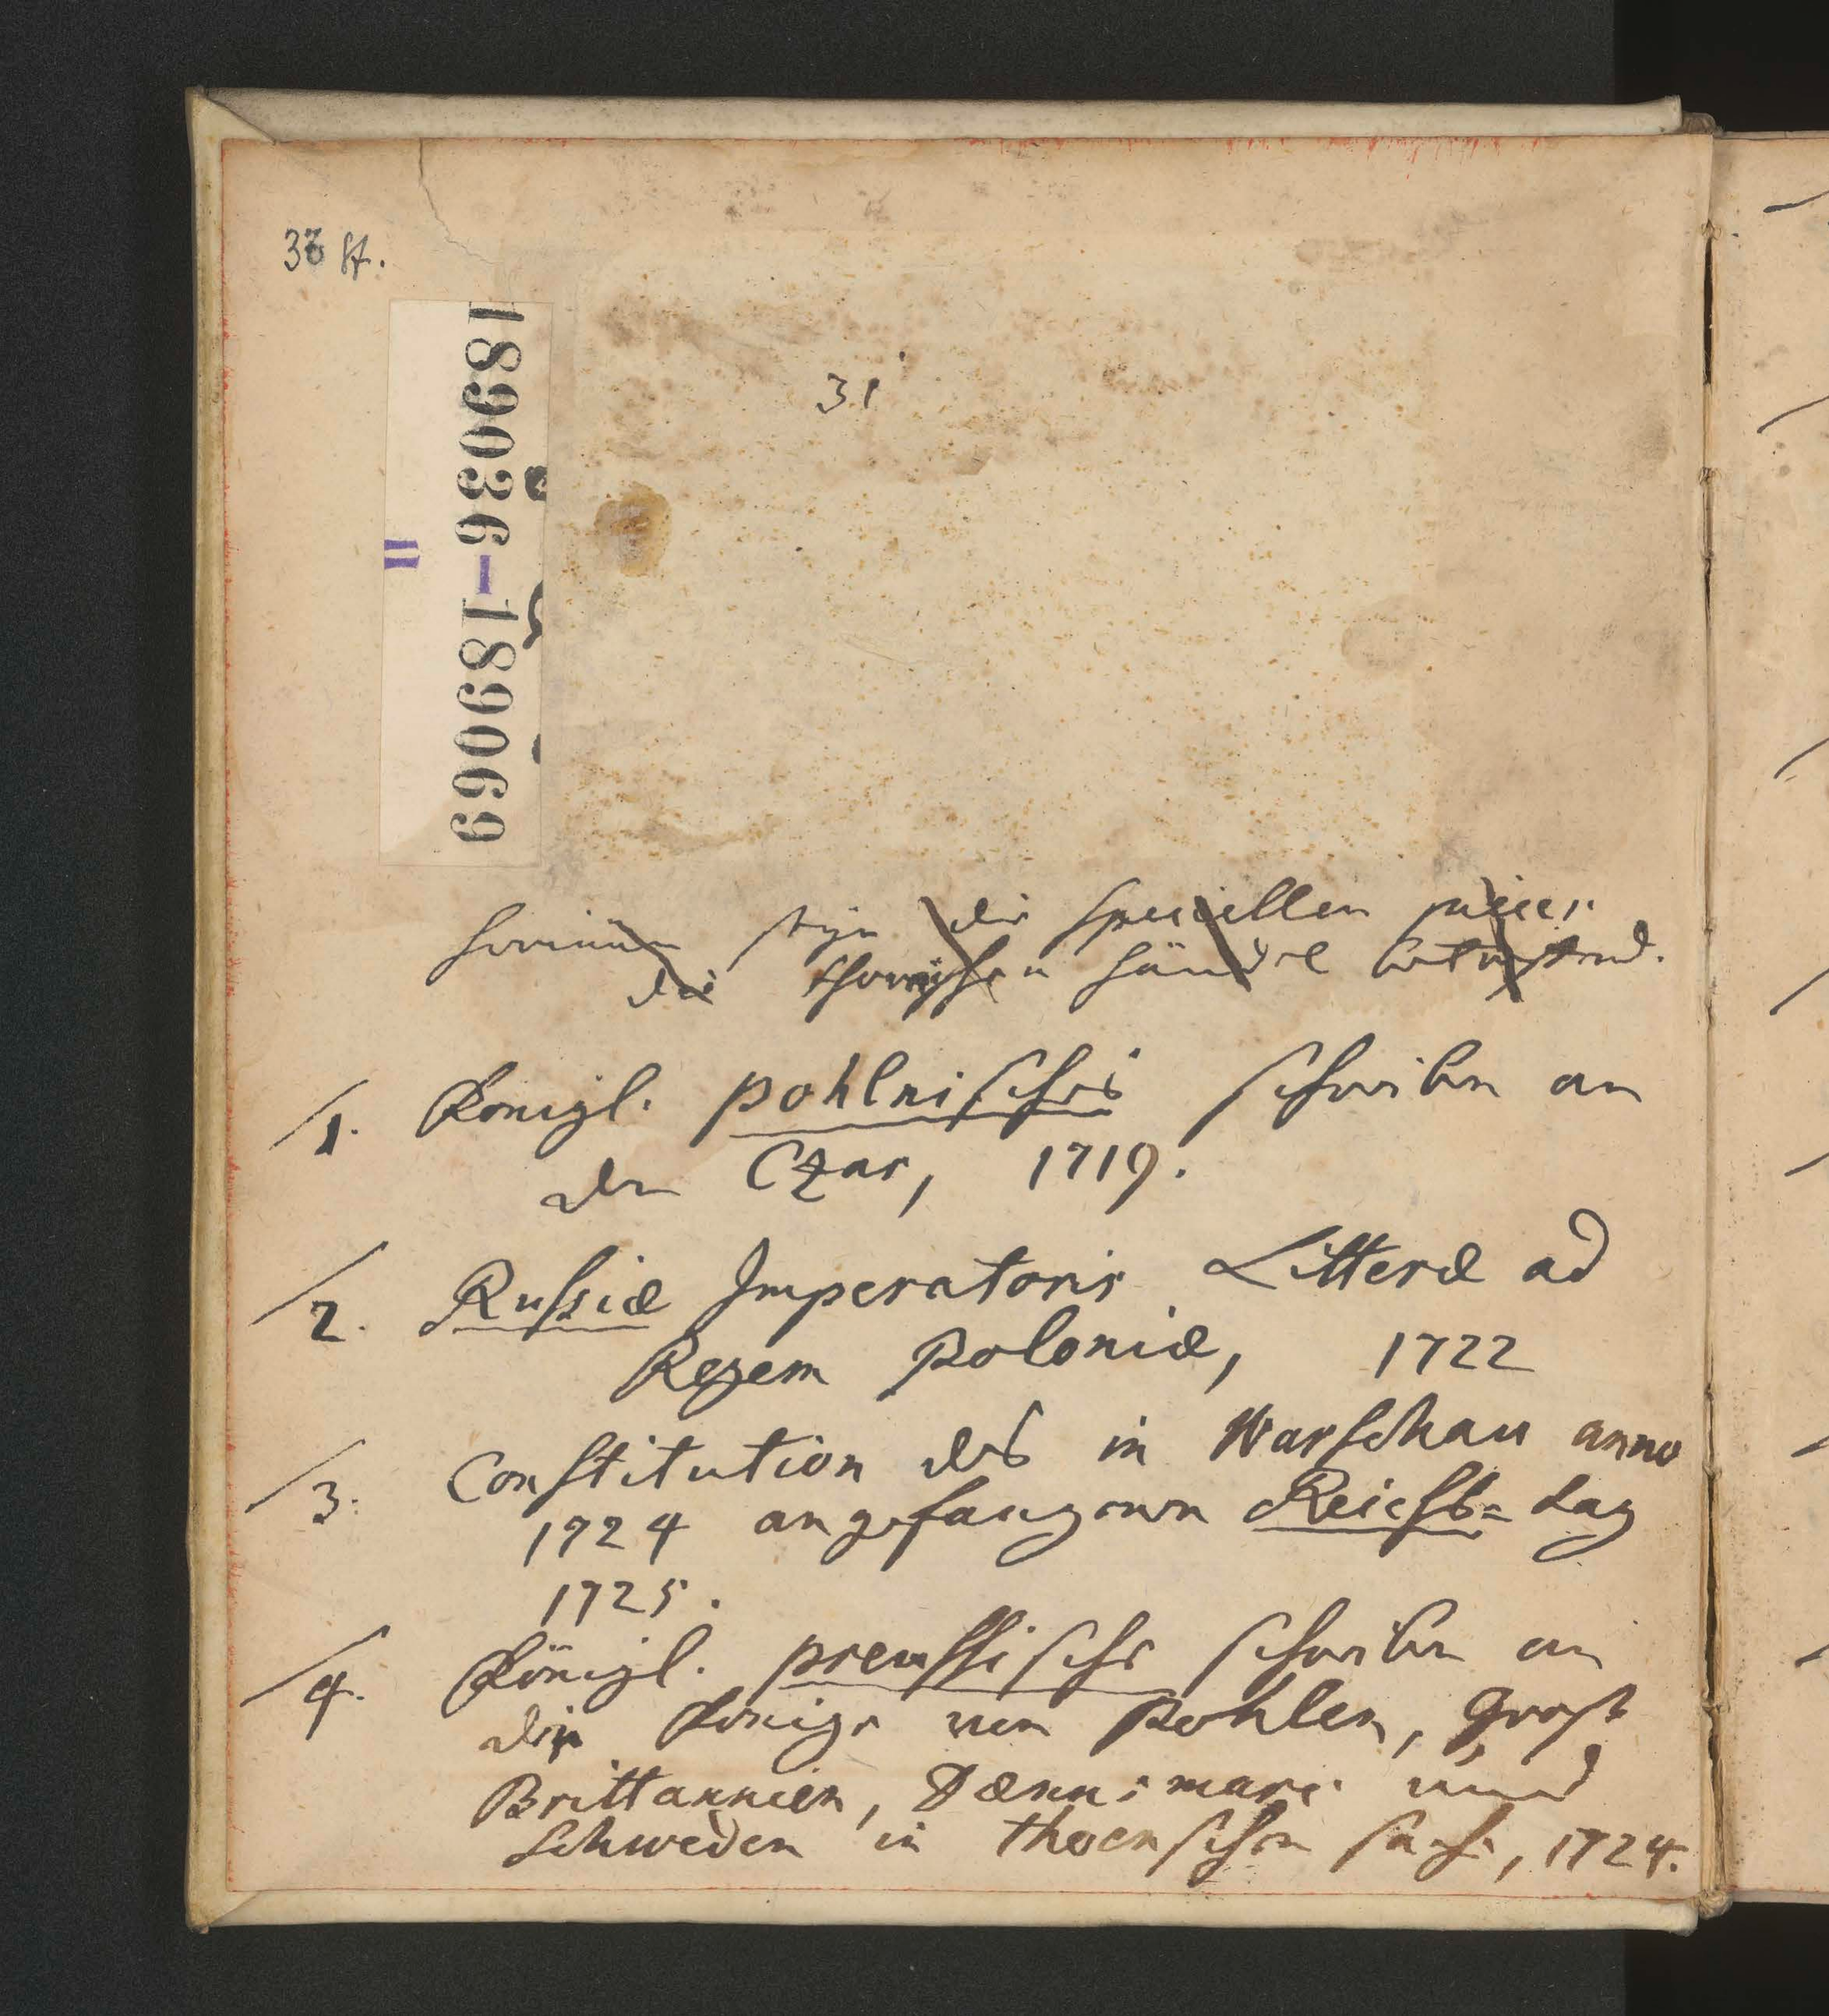 33 St.
189036-189069
II
31
hierinnen seyn die speciellen piecen
die thornischen händel betreffend.
1. Königl. pohlnisches schreiben an
den Czar, 1719.
2. Russiæ Imperatoris Litteræ ad
Regem Poloniæ, 1722
3. Constitution des in Warschau anno
1724 angefangenen Reichs= tag
1725.
4. Königl. preussische schreiben an
die Könige von Pohlen, Groß
Brittannien, Dænnemarc und
Schweden in thornschen sache, 1724.